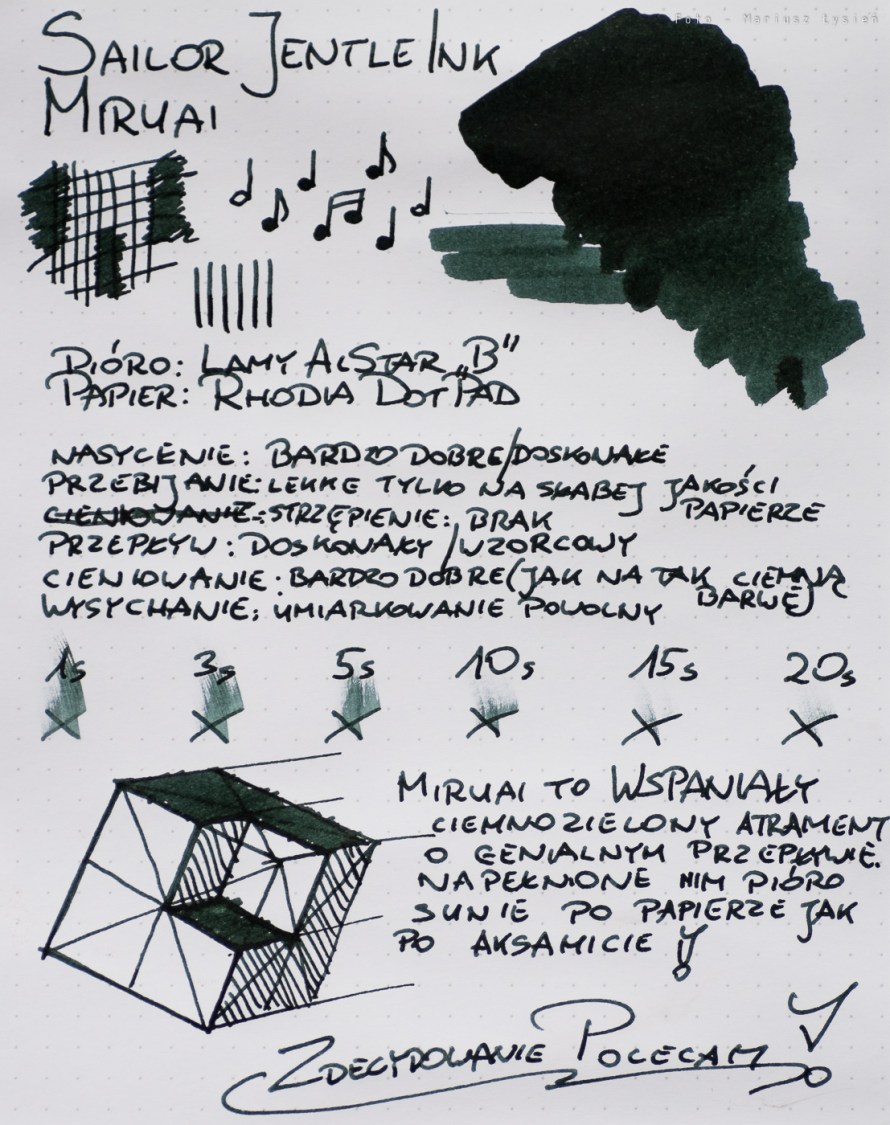 Foto - Mariusz Łysień
SAILOR JENTLE INK
MIRUAI
PIÓRO: LAMY ALSTAR „B"
PAPIER: RHODIA DOTPAD
NASYCENIE: BARDZO DOBRE/DOSKONAŁE
PRZEBIJANIE: LEKKIE TYLKO NA SŁABEJ JAKOŚCI
PAPIERZE
CIENIOWANIE: STRZĘPIENIE: BRAK
PRZEPŁYW: DOSKONAŁY/WZORCOWY
CIENIOWANIE: BARDZO DOBRE (JAK NA TAK CIEMNĄ
BARWĘ)
WYSYCHANIE: UMIARKOWANIE POWOLNY
1s 3s 5s 10s 15s 20s
MIRUAI TO WSPANIAŁY
CIEMNOZIELONY ATRAMENT
O GENIALNYM PRZEPŁYWIE.
NAPEŁNIONE NIM PIÓRO
SUNIE PO PAPIERZE JAK
PO AKSAMICIE !
ZDECYDOWANIE POLECAM !